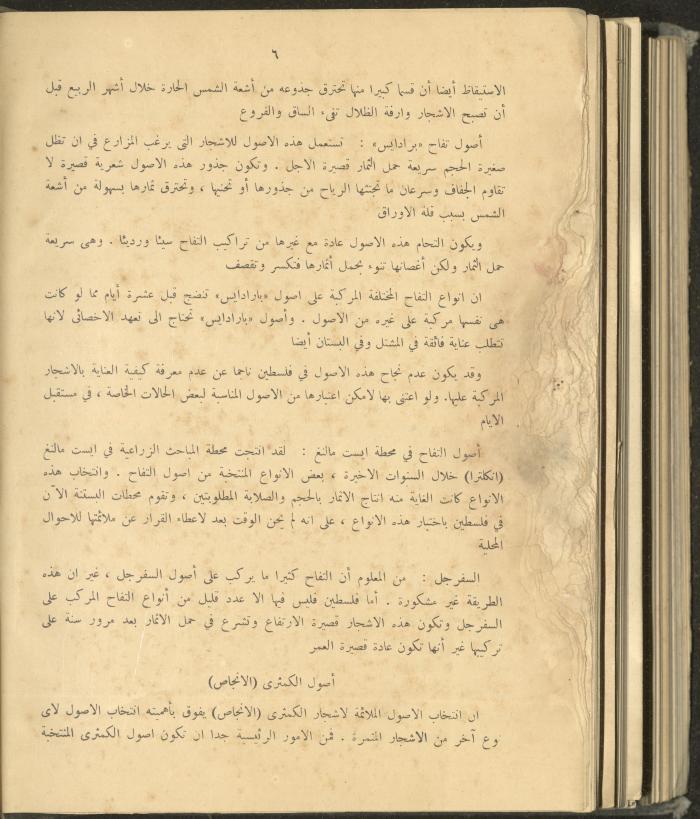 ٦
الاستيقاظ أيضا أن قسما كبيرا منها تحترق جذوعه من أشعة الشمس الحارة خلال أشهر الربيع قبل
أن تصبح الاشجار وارقة الظلال تفيء الساق والفروع
أصول تفاح «برادايس» : تستعمل هذه الاصول للاشجار التي يرغب المزارع في ان تظل
صغيرة الحجم سريعة حمل الثمار قصيرة الاجل . وتكون جذور هذه الاصول شعرية قصيرة لا
تقاوم الجفاف وسرعان ما تجتثها الرياح من جذورها أو تحنيها ، وتحترق ثمارها بسهولة من أشعة
الشمس بسبب قلة الاوراق
ويكون التحام هذه الاصول عادة مع غيرها من تراكيب التفاح سيئا ورديئا . وهى سريعة
حمل الثمار ولكن أغصانها تنوء بحمل أثمارها فتكسر وتقصف
ان انواع التفاح المختلفة المركبة على اصول «بارادايس» تنضج قبل عشرة أيام مما لو كانت
هى نفسها مركبة على غيره من الاصول . وأصول «بارادايس» تحتاج الى تعهد الاخصائى لانها
تتطلب عناية فائقة في المشتل وفي البستان أيضا
وقد يكون عدم نجاح هذه الاصول في فلسطين ناجما عن عدم معرفة كيفية العناية بالاشجار
المركبة عليها. ولو اعتنى بها لامكن اعتبارها من الاصول المناسبة لبعض الحالات الخاصة ، في مستقبل
الايام
أصول التفاح في محطة ايست مالنغ : لقد انتجت محطة المباحث الزراعية في ايست مالنغ
(انكلترا) خلال السنوات الاخيرة ، بعض الانواع المنتخبة من اصول التفاح . وانتخاب هذه
الانواع كانت الغاية منه انتاج الاثمار بالحجم والصلابة المطلوبتين ، وتقوم محطات البستنة الآن
في فلسطين باختبار هذه الانواع ، على انه لم يحن الوقت بعد لاعطاء القرار عن ملائمتها للاحوال
المحلية
السفرجل : من المعلوم أن التفاح كثيرا ما يركب على أصول السفرجل ، غير ان هذه
الطريقة غير مشكورة . أما فلسطين فليس فيها الا عدد قليل من أنواع التفاح المركب على
السفرجل وتكون هذه الاشجار قصيرة الارتفاع وتشرع في حمل الاثمار بعد مرور سنة على
تركيبها غير أنها تكون عادة قصيرة العمر
أصول الكمثرى (الانجاص)
ان انتخاب الاصول الملائمة لاشجار الكمثرى (الانجاص) يفوق بأهميته انتخاب الاصول لاى
نوع آخر من الاشجار المثمرة . فمن الامور الرئيسية جدا ان تكون اصول الكمثرى المنتخبة